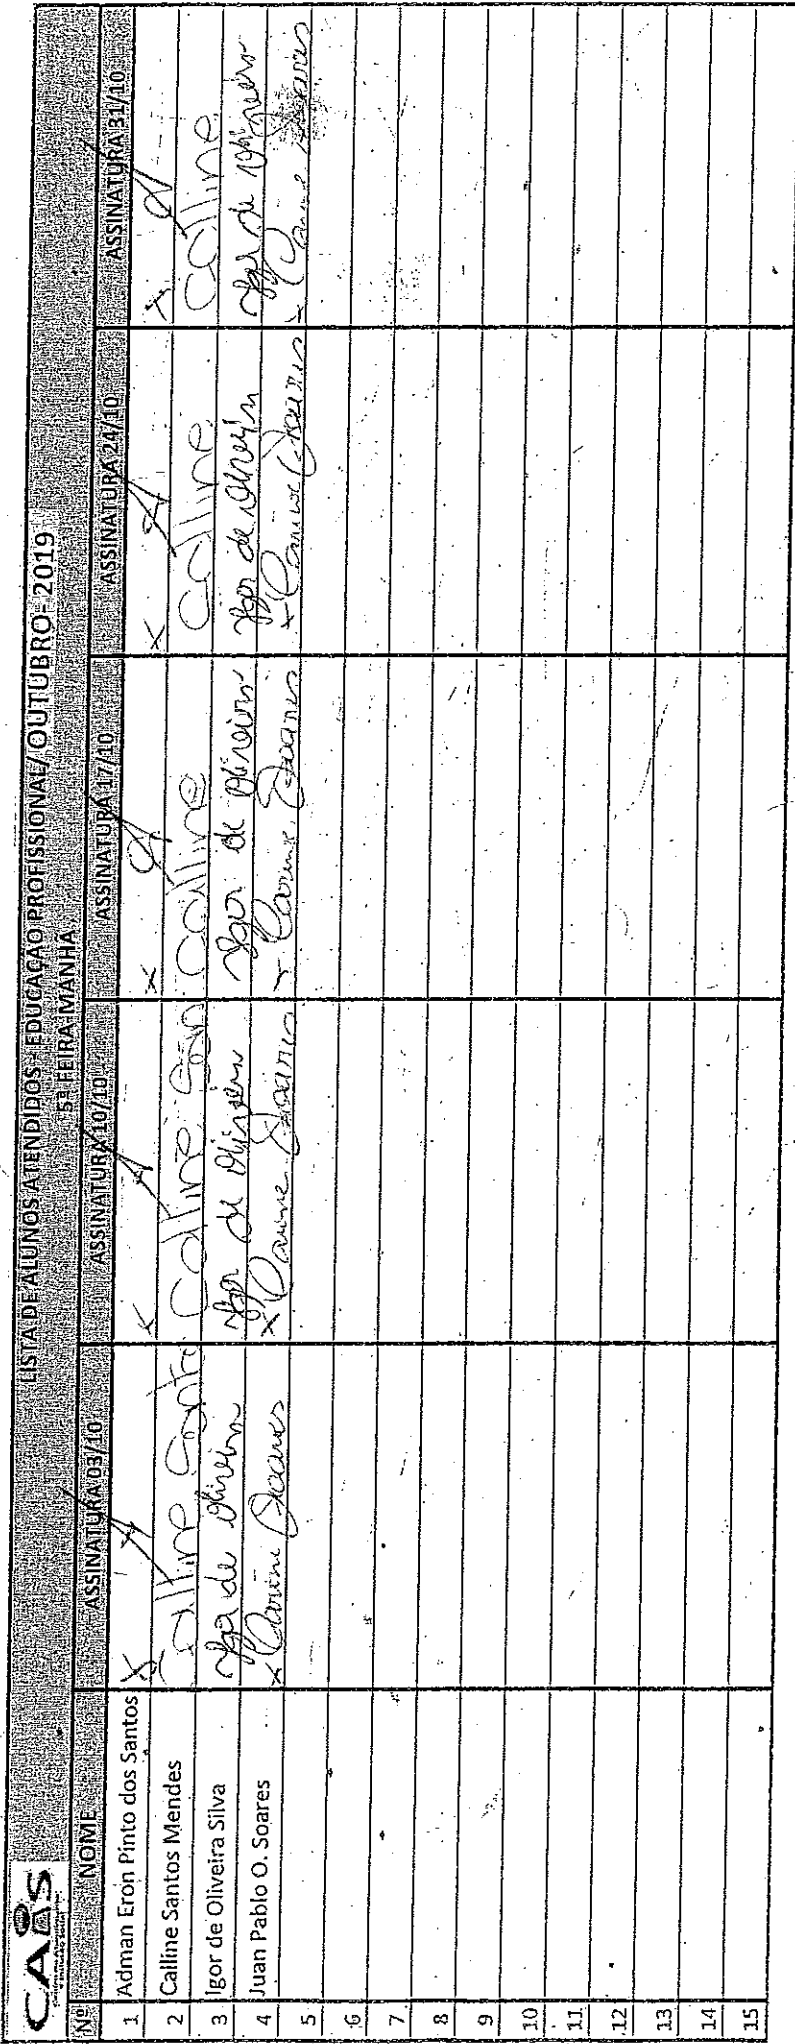 CAIS
LISTA DE ALUNOS ATENDIDOS - EDUCAÇÃO PROFISSIONAL/ OUTUBRO - 2019
5ª FEIRA MANHÃ
Nº NOME ASSINATURA 03/10 ASSINATURA 10/10 ASSINATURA 17/10 ASSINATURA 24/10 ASSINATURA 31/10
1 Adman Eron Pinto dos Santos X X X X
2 Calline Santos Mendes Calline Santo Calline San Calline Calline Calline
3 Igor de Oliveira Silva Igor de Oliveira Igor de Oliveira Igor de Oliveira Igor de Oliveira Igor de Oliveira
4 Juan Pablo O. Soares x Carine Soares x Carine Soares x Carine Soares x Carine Soares x Carine Soares
5
6
7
8
9
10
11
12
13
14
15